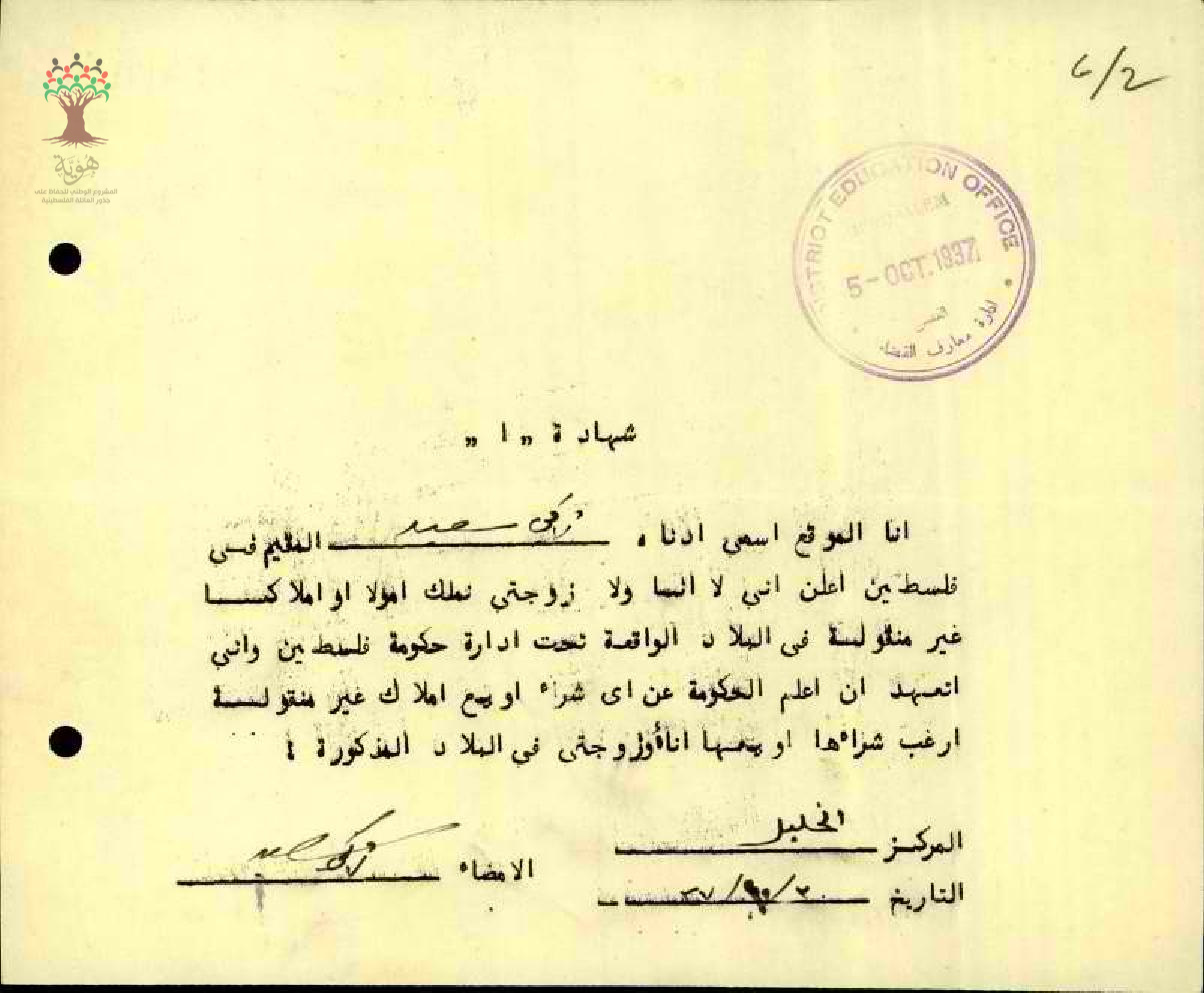 6/2
هوية
المشروع الوطني للحفاظ على
جذور العائلة الفلسطينية
DISTRICT EDUCATION OFFICE
JERUSALEM
5 - OCT. 1937
القدس
ادارة معارف القضاء
شهادة „ ا „
انا الموقع اسمي ادناه زكي سعيد المقيم فسي
فلسطين اعلن اني لا انسا ولا زوجتي نملك اموالا او املاكسا
غير منقولسة في البلاد الواقعة تحت ادارة حكومة فلسطين واني
اتعهد ان اعلم الحكومة عن اى شراء او بيع املاك غير منقولسة
ارغب شراءها او بيعها انا أو زوجتي في البلاد المذكورة :
المركز الخليل
الامضاء زكي سعيد
التاريخ ٣٧/ /٣٠